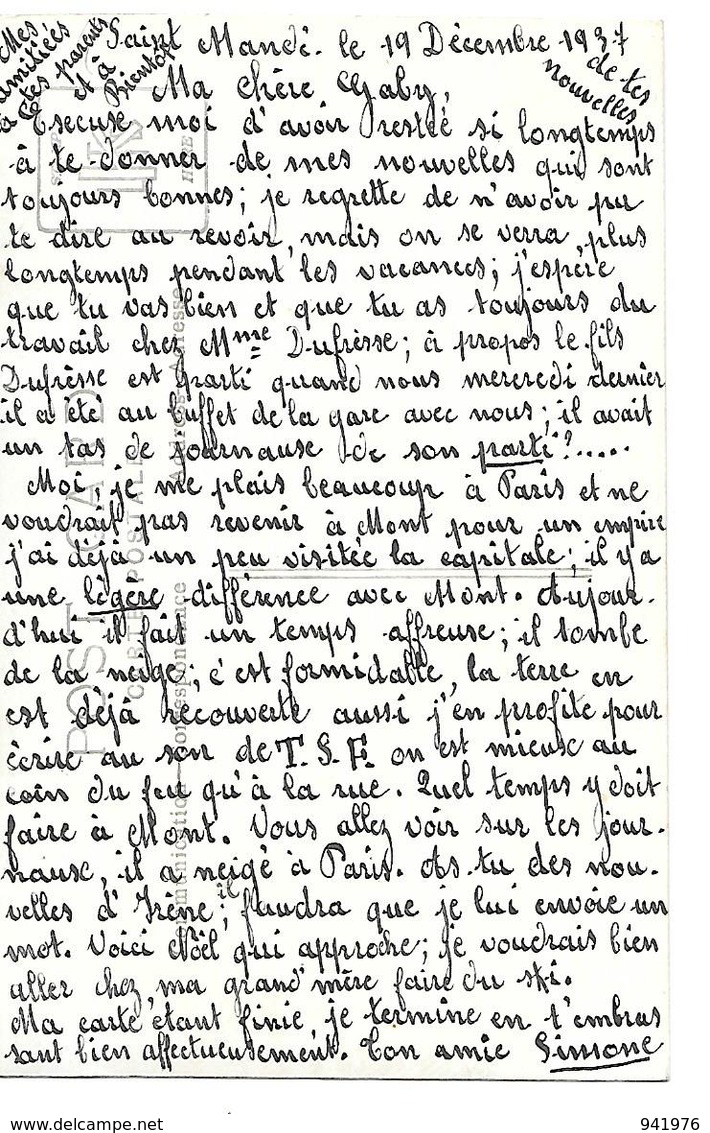 Mes
amitiées
à tes parents
et à
Bientôt
de tes
nouvelles
Saint Mandé. le 19 Décembre 1937
Ma chère Gaby,
Escuse moi d'avoir restée si longtemps
à te donner de mes nouvelles qui sont
toujours bonnes; je regrette de n'avoir pu
te dire au revoir, mais on se verra plus
longtemps pendant les vacances; j'espère
que tu vas bien et que tu as toujours du
travail chez Mme Dufrèsse; à propos le fils
Dufrèsse est parti quand nous mercredi dernier
il a été au buffet de la gare avec nous; il avait
un tas de journause de son parti?.....
Moi, je me plais beaucoup à Paris et ne
voudrait pas revenir à Mont pour un empire
j'ai déjà un peu visitée la capitale; il y a
une légère différence avec Mont. Aujour-
d'hui il fait un temps affreuse; il tombe
de la neige; c'est formidable, la terre en
est déjà recouverte aussi j'en profite pour
écrire au son de T.S.F. on est mieuse au
coin du feu qu'à la rue. Quel temps y doit
faire à Mont. Vous allez voir sur les jour-
nause, il a neigé à Paris. As-tu des nou-
velles d'Irène; il faudra que je lui envoie un
mot. Voici Noël qui approche; je voudrais bien
aller chez ma grand'mère faire du ski.
Ma carte étant finie, je termine en t'embras
sant bien affectueusement. Ton amie Simone
POST CARD
CARTE POSTALE
Correspondance
Adresse
HERE
www.delcampe.net
941976